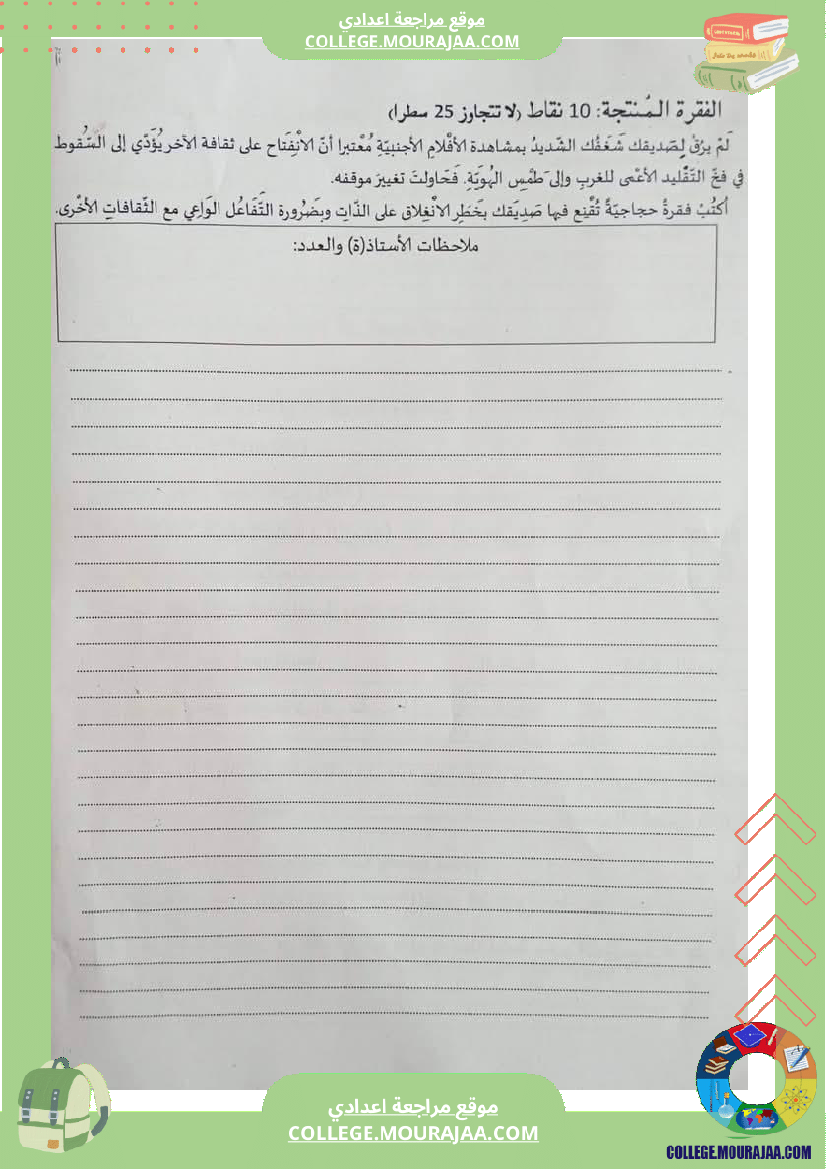 موقع مراجعة اعدادي
COLLEGE.MOURAJAA.COM
الفقرة المُنتجة: 10 نقاط (لا تتجاوز 25 سطرا)
لَمْ يرُقْ لِصَديقك شَغَفُك الشّديدُ بمشاهدة الأفْلامِ الأجنبيّةِ مُعْتبرا أنّ الانْفِتاح على ثقافة الآخر يُؤدّي إلى السّقوط
في فخّ التّقْليد الأعْمى للغربِ وإلى طَمْسِ الهُويّةِ. فَحَاولتَ تغييرَ موقفه.
أكتُبْ فقرةً حجاجيّةً تُقْنِع فيها صَدِيقك بخَطرِ الانْغِلاق على الذّاتِ وبضَرُورة التّفَاعُل الوَاعِي مع الثّقافاتِ الأخْرى.
ملاحظات الأستاذ(ة) والعدد:
موقع مراجعة اعدادي
COLLEGE.MOURAJAA.COM
COLLEGE.MOURAJAA.COM